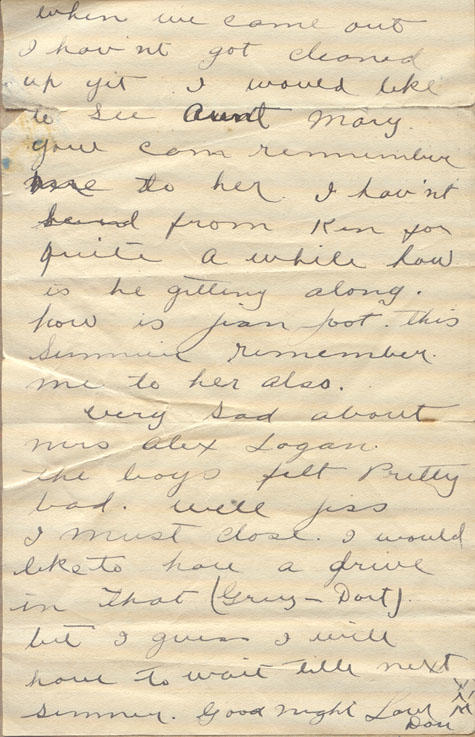 when we came out
I hav'nt got cleaned
up yit. I would like
to see Aunt Mary.
your can remmember
me to her. I hav'nt
heard from Ken for
quite a while how
is he gitting along.
how is jean foot. this
Summer remember.
me to her also.
very sad about
mrs alex Logan.
the boys felt Pretty
bad. well jiss
I must close. I would
like to have a drive
in That (Gray-Dort).
but I guess I will
have to wait till next
summer. Good night Love
Don